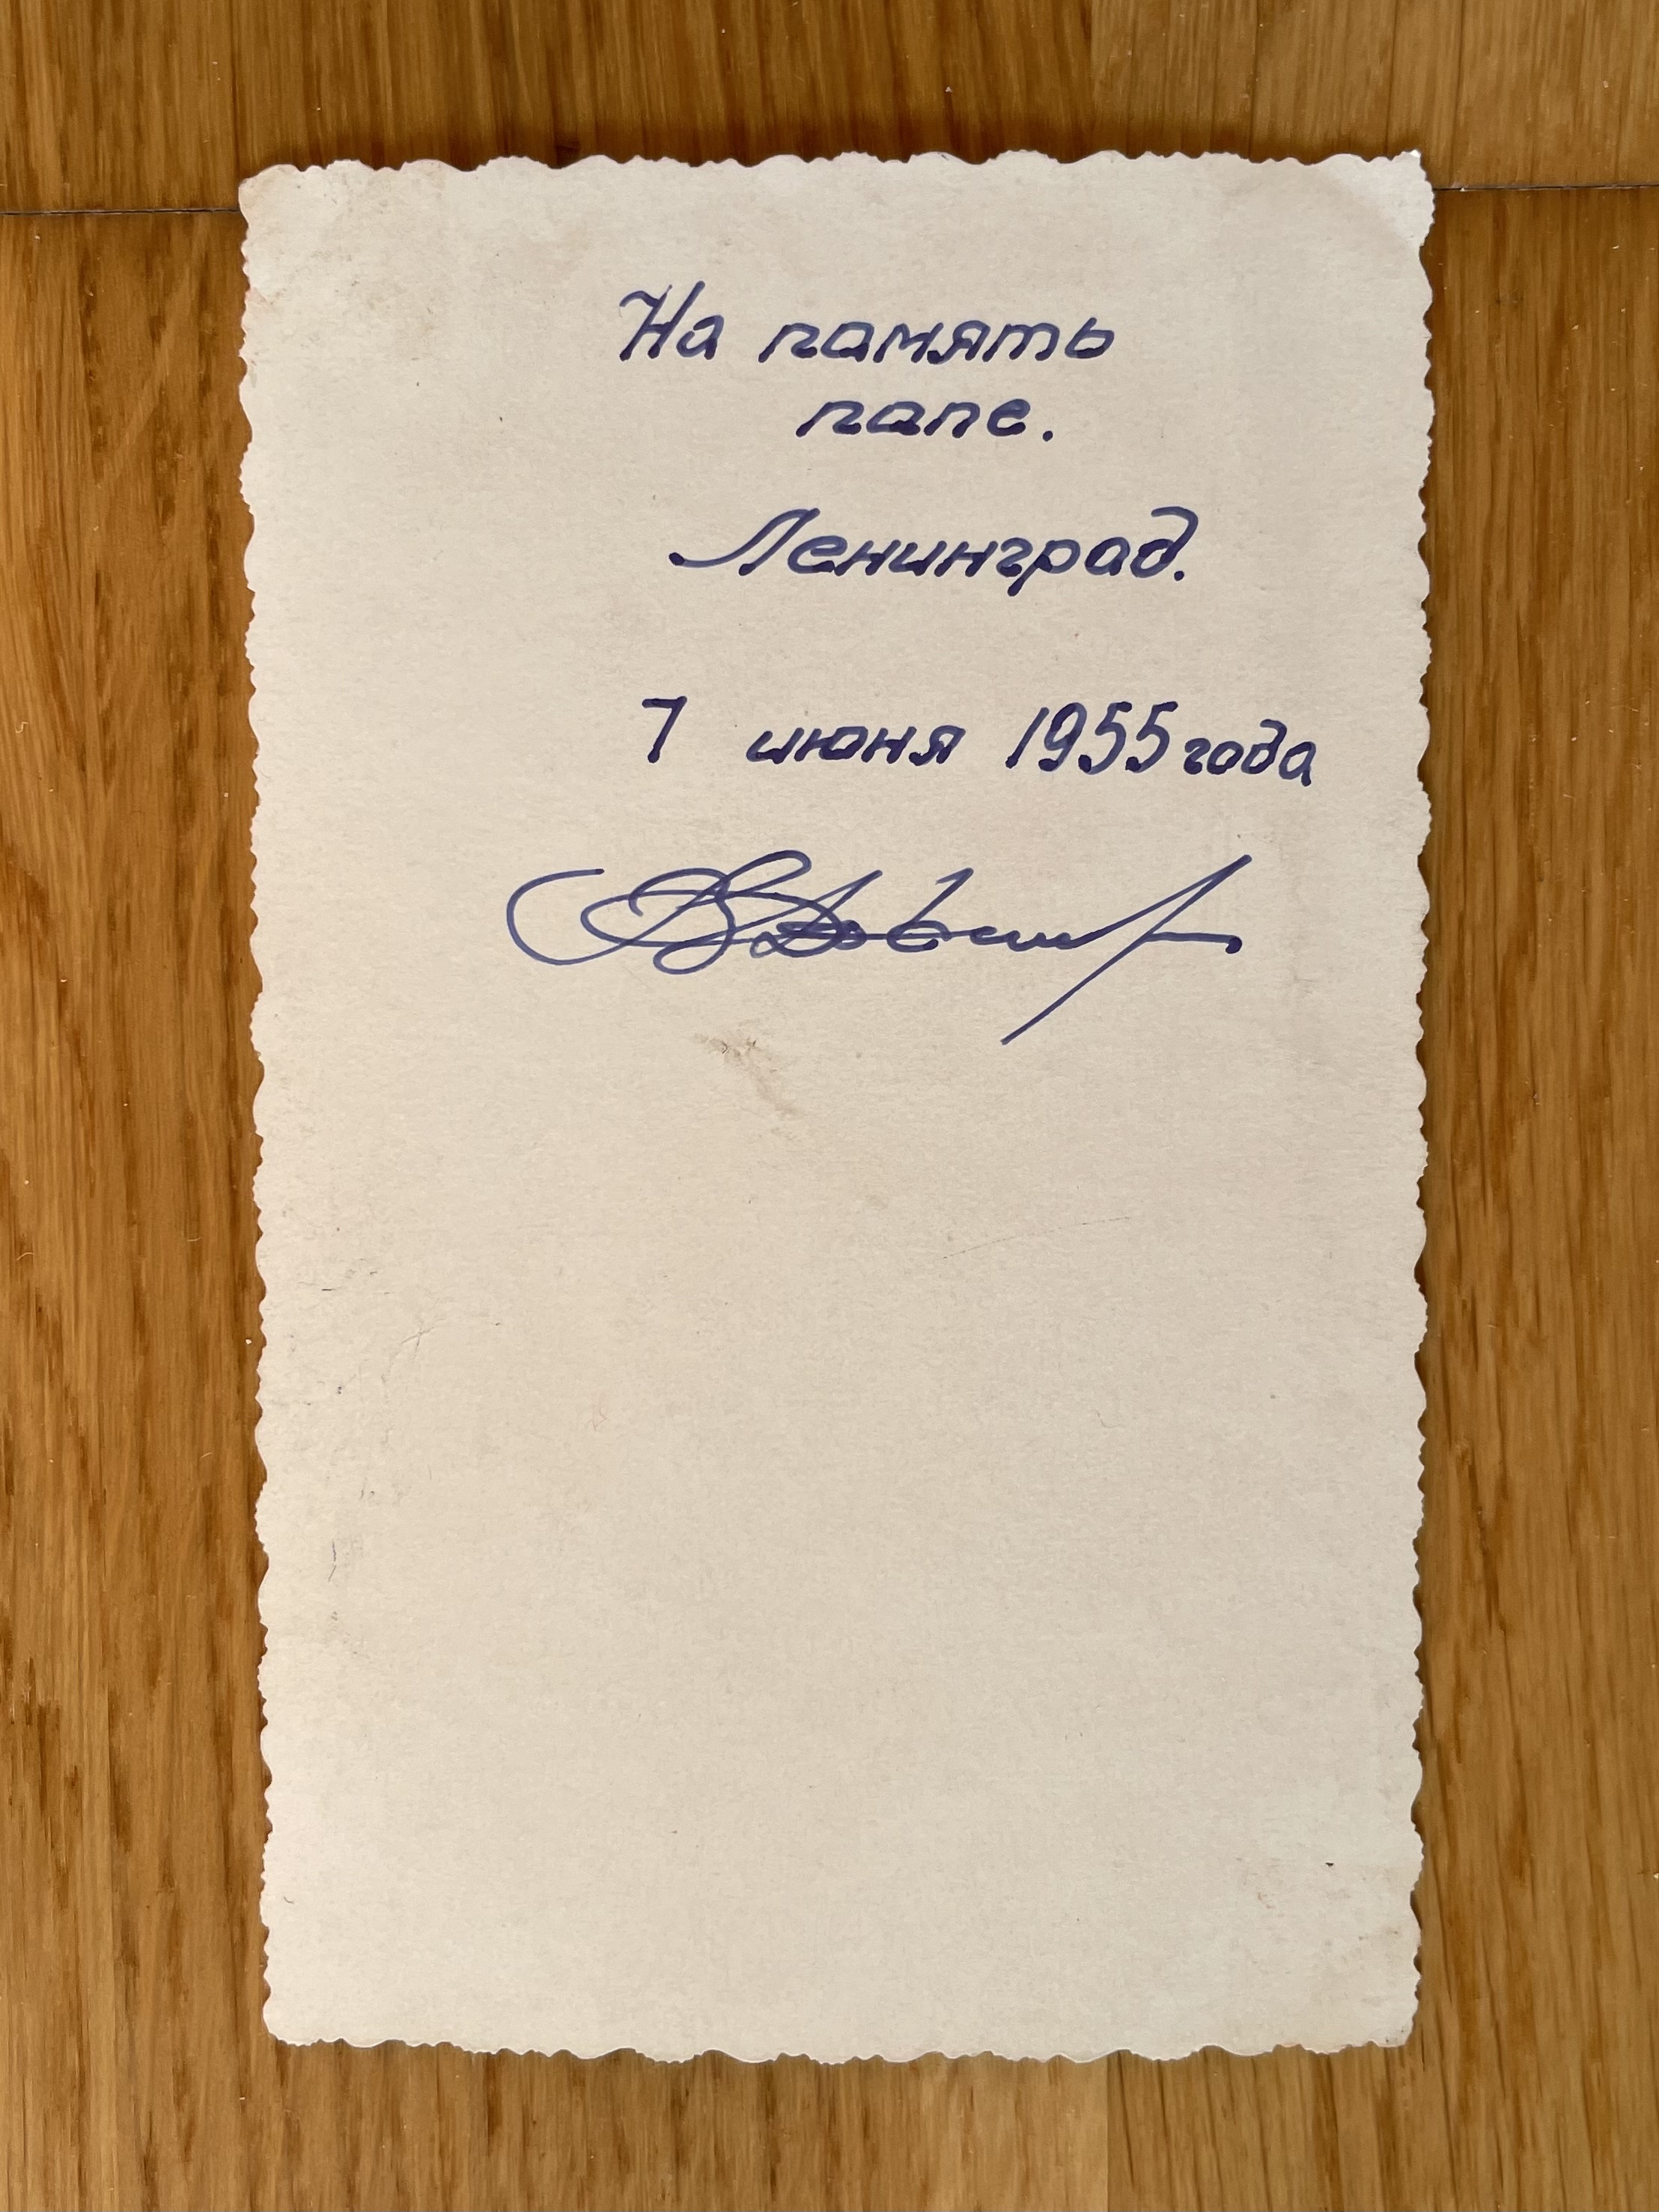 На память
папе.
Ленинград.
7 июня 1955 года